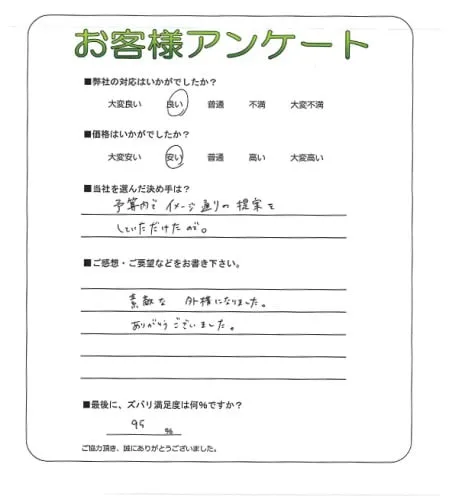 お客様アンケート
■弊社の対応はいかがでしたか？
大変良い 良い 普通 不満 大変不満
■価格はいかがでしたか？
大変安い 安い 普通 高い 大変高い
■当社を選んだ決め手は？
予算内で イメージ通りの 提案を
していただけたので。
■ご感想・ご要望などをお書き下さい。
素敵な 外構になりました。
ありがとうございました。
■最後に、ズバリ満足度は何％ですか？
95 ％
ご協力頂き、誠にありがとうございました。